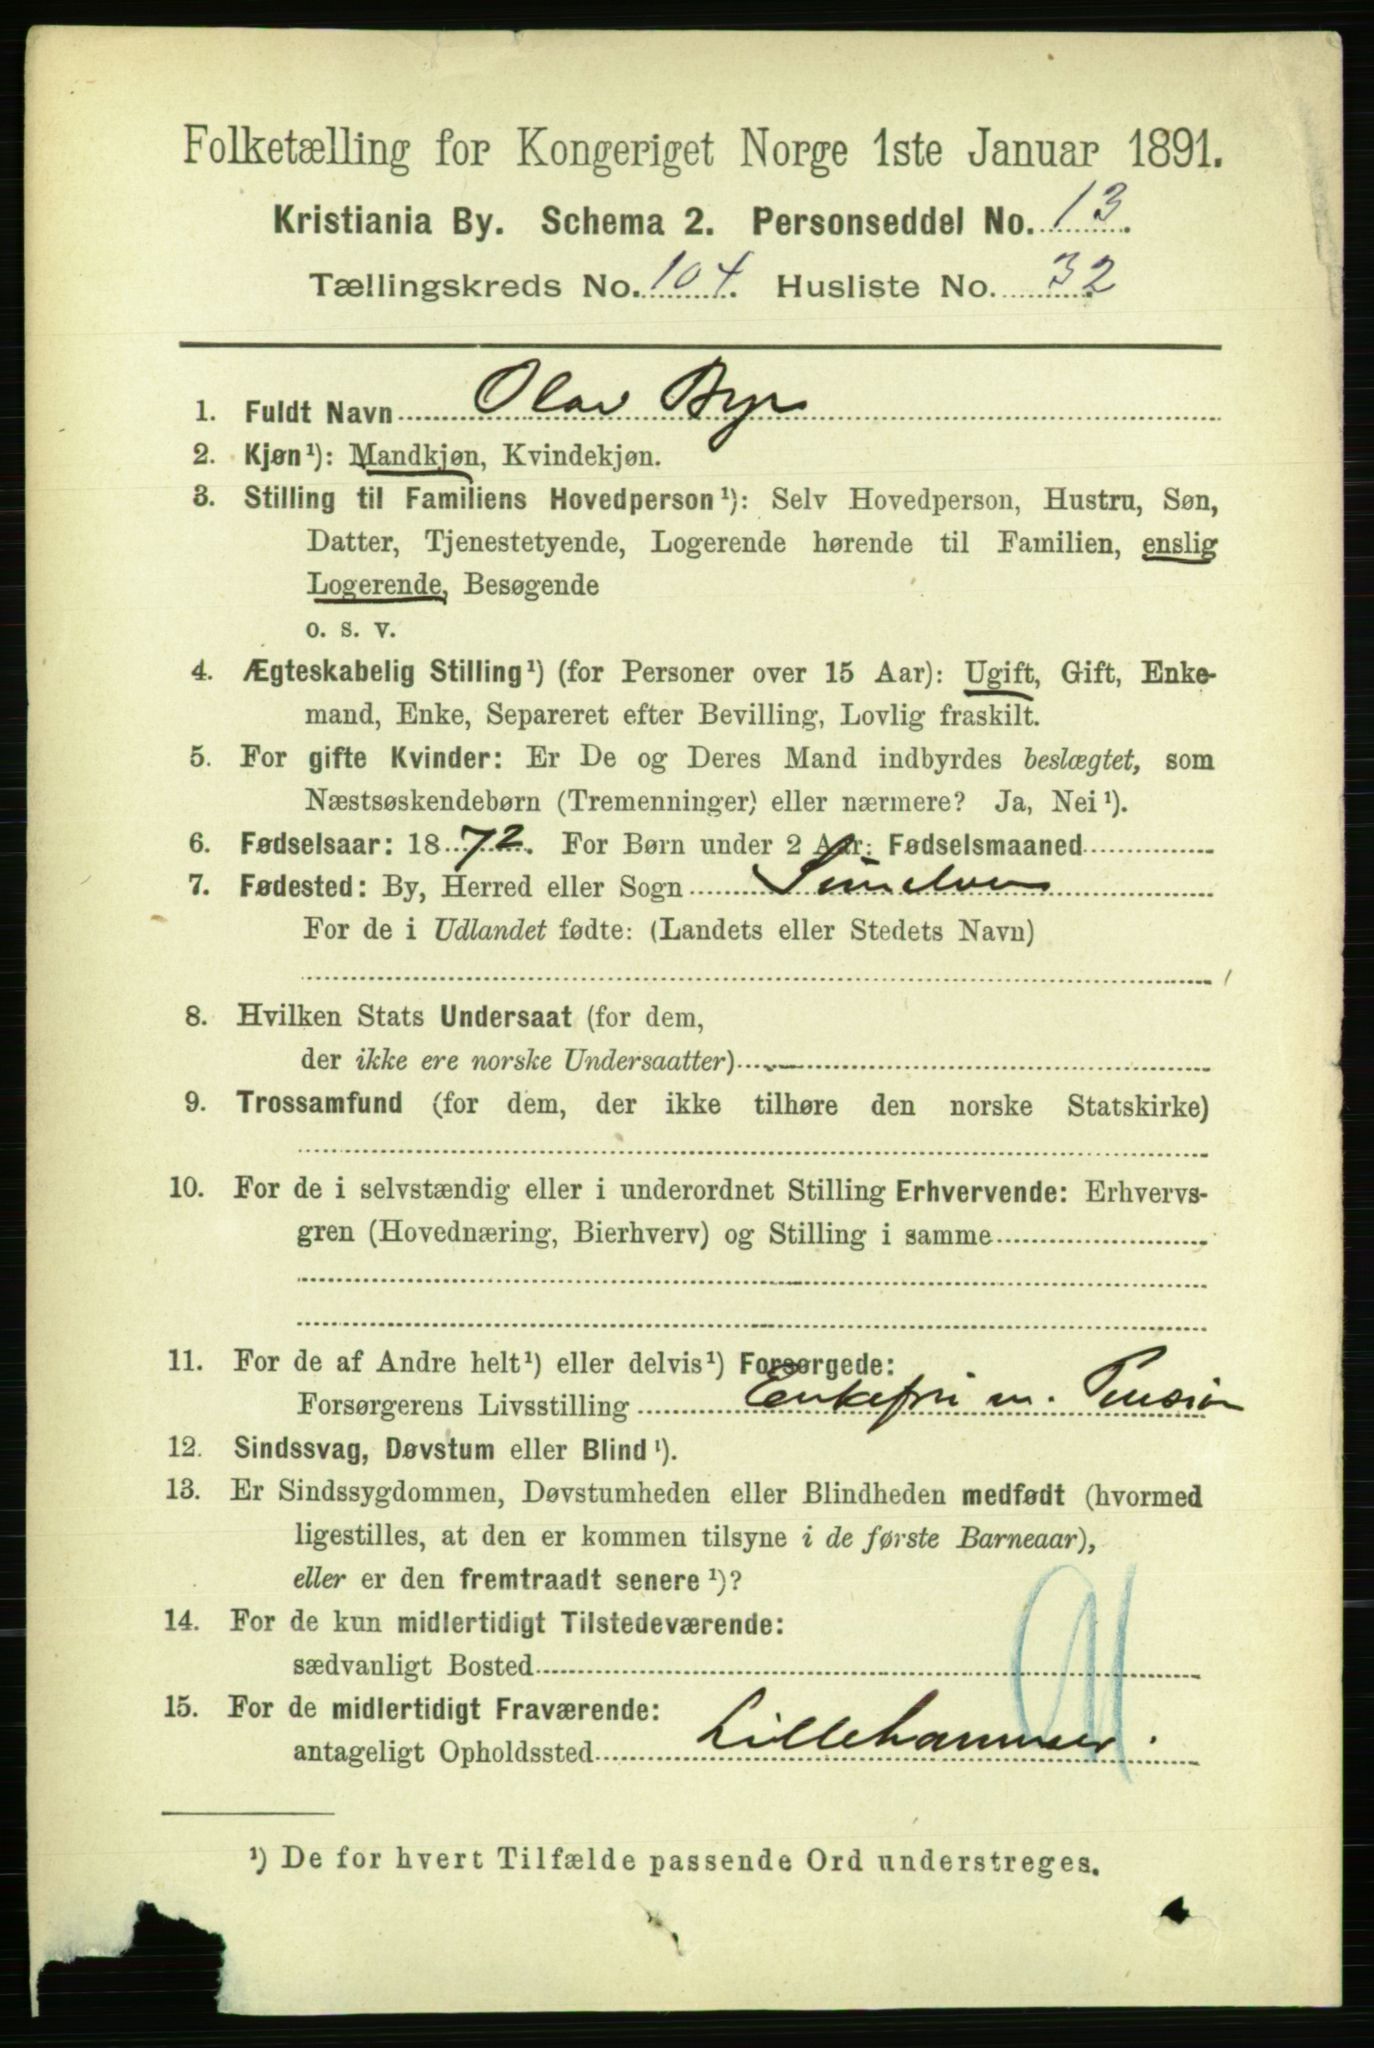 Folketælling for Kongeriget Norge 1ste Januar 1891.
Kristiania By. Schema 2. Personseddel No. 13.
Tællingskreds No. 104. Husliste No. 32
1. Fuldt Navn Olav Bye
2. Kjøn¹): Mandkjøn, Kvindekjøn.
3. Stilling til Familiens Hovedperson¹): Selv Hovedperson, Hustru, Søn,
Datter, Tjenestetyende, Logerende hørende til Familien, enslig
Logerende, Besøgende
o. s. v.
4. Ægteskabelig Stilling¹) (for Personer over 15 Aar): Ugift, Gift, Enke-
mand, Enke, Separeret efter Bevilling, Lovlig fraskilt.
5. For gifte Kvinder: Er De og Deres Mand indbyrdes beslægtet, som
Næstsøskendebørn (Tremenninger) eller nærmere? Ja, Nei¹).
6. Fødselsaar: 1872. For Børn under 2 Aar: Fødselsmaaned
7. Fødested: By, Herred eller Sogn
For de i Udlandet fødte: (Landets eller Stedets Navn)
8. Hvilken Stats Undersaat (for dem,
der ikke ere norske Undersaatter)
9. Trossamfund (for dem, der ikke tilhøre den norske Statskirke)
10. For de i selvstændig eller i underordnet Stilling Erhvervende: Erhvervs-
gren (Hovednæring, Bierhverv) og Stilling i samme
11. For de af Andre helt¹) eller delvis¹) Forsørgede:
Forsørgerens Livsstilling Enkefru m. Pension
12. Sindssvag, Døvstum eller Blind¹).
13. Er Sindssygdommen, Døvstumheden eller Blindheden medfødt (hvormed
ligestilles, at den er kommen tilsyne i de første Barneaar),
eller er den fremtraadt senere¹)?
14. For de kun midlertidigt Tilstedeværende:
sædvanligt Bosted
15. For de midlertidigt Fraværende:
antageligt Opholdssted Lillehammer.
¹) De for hvert Tilfælde passende Ord understreges.